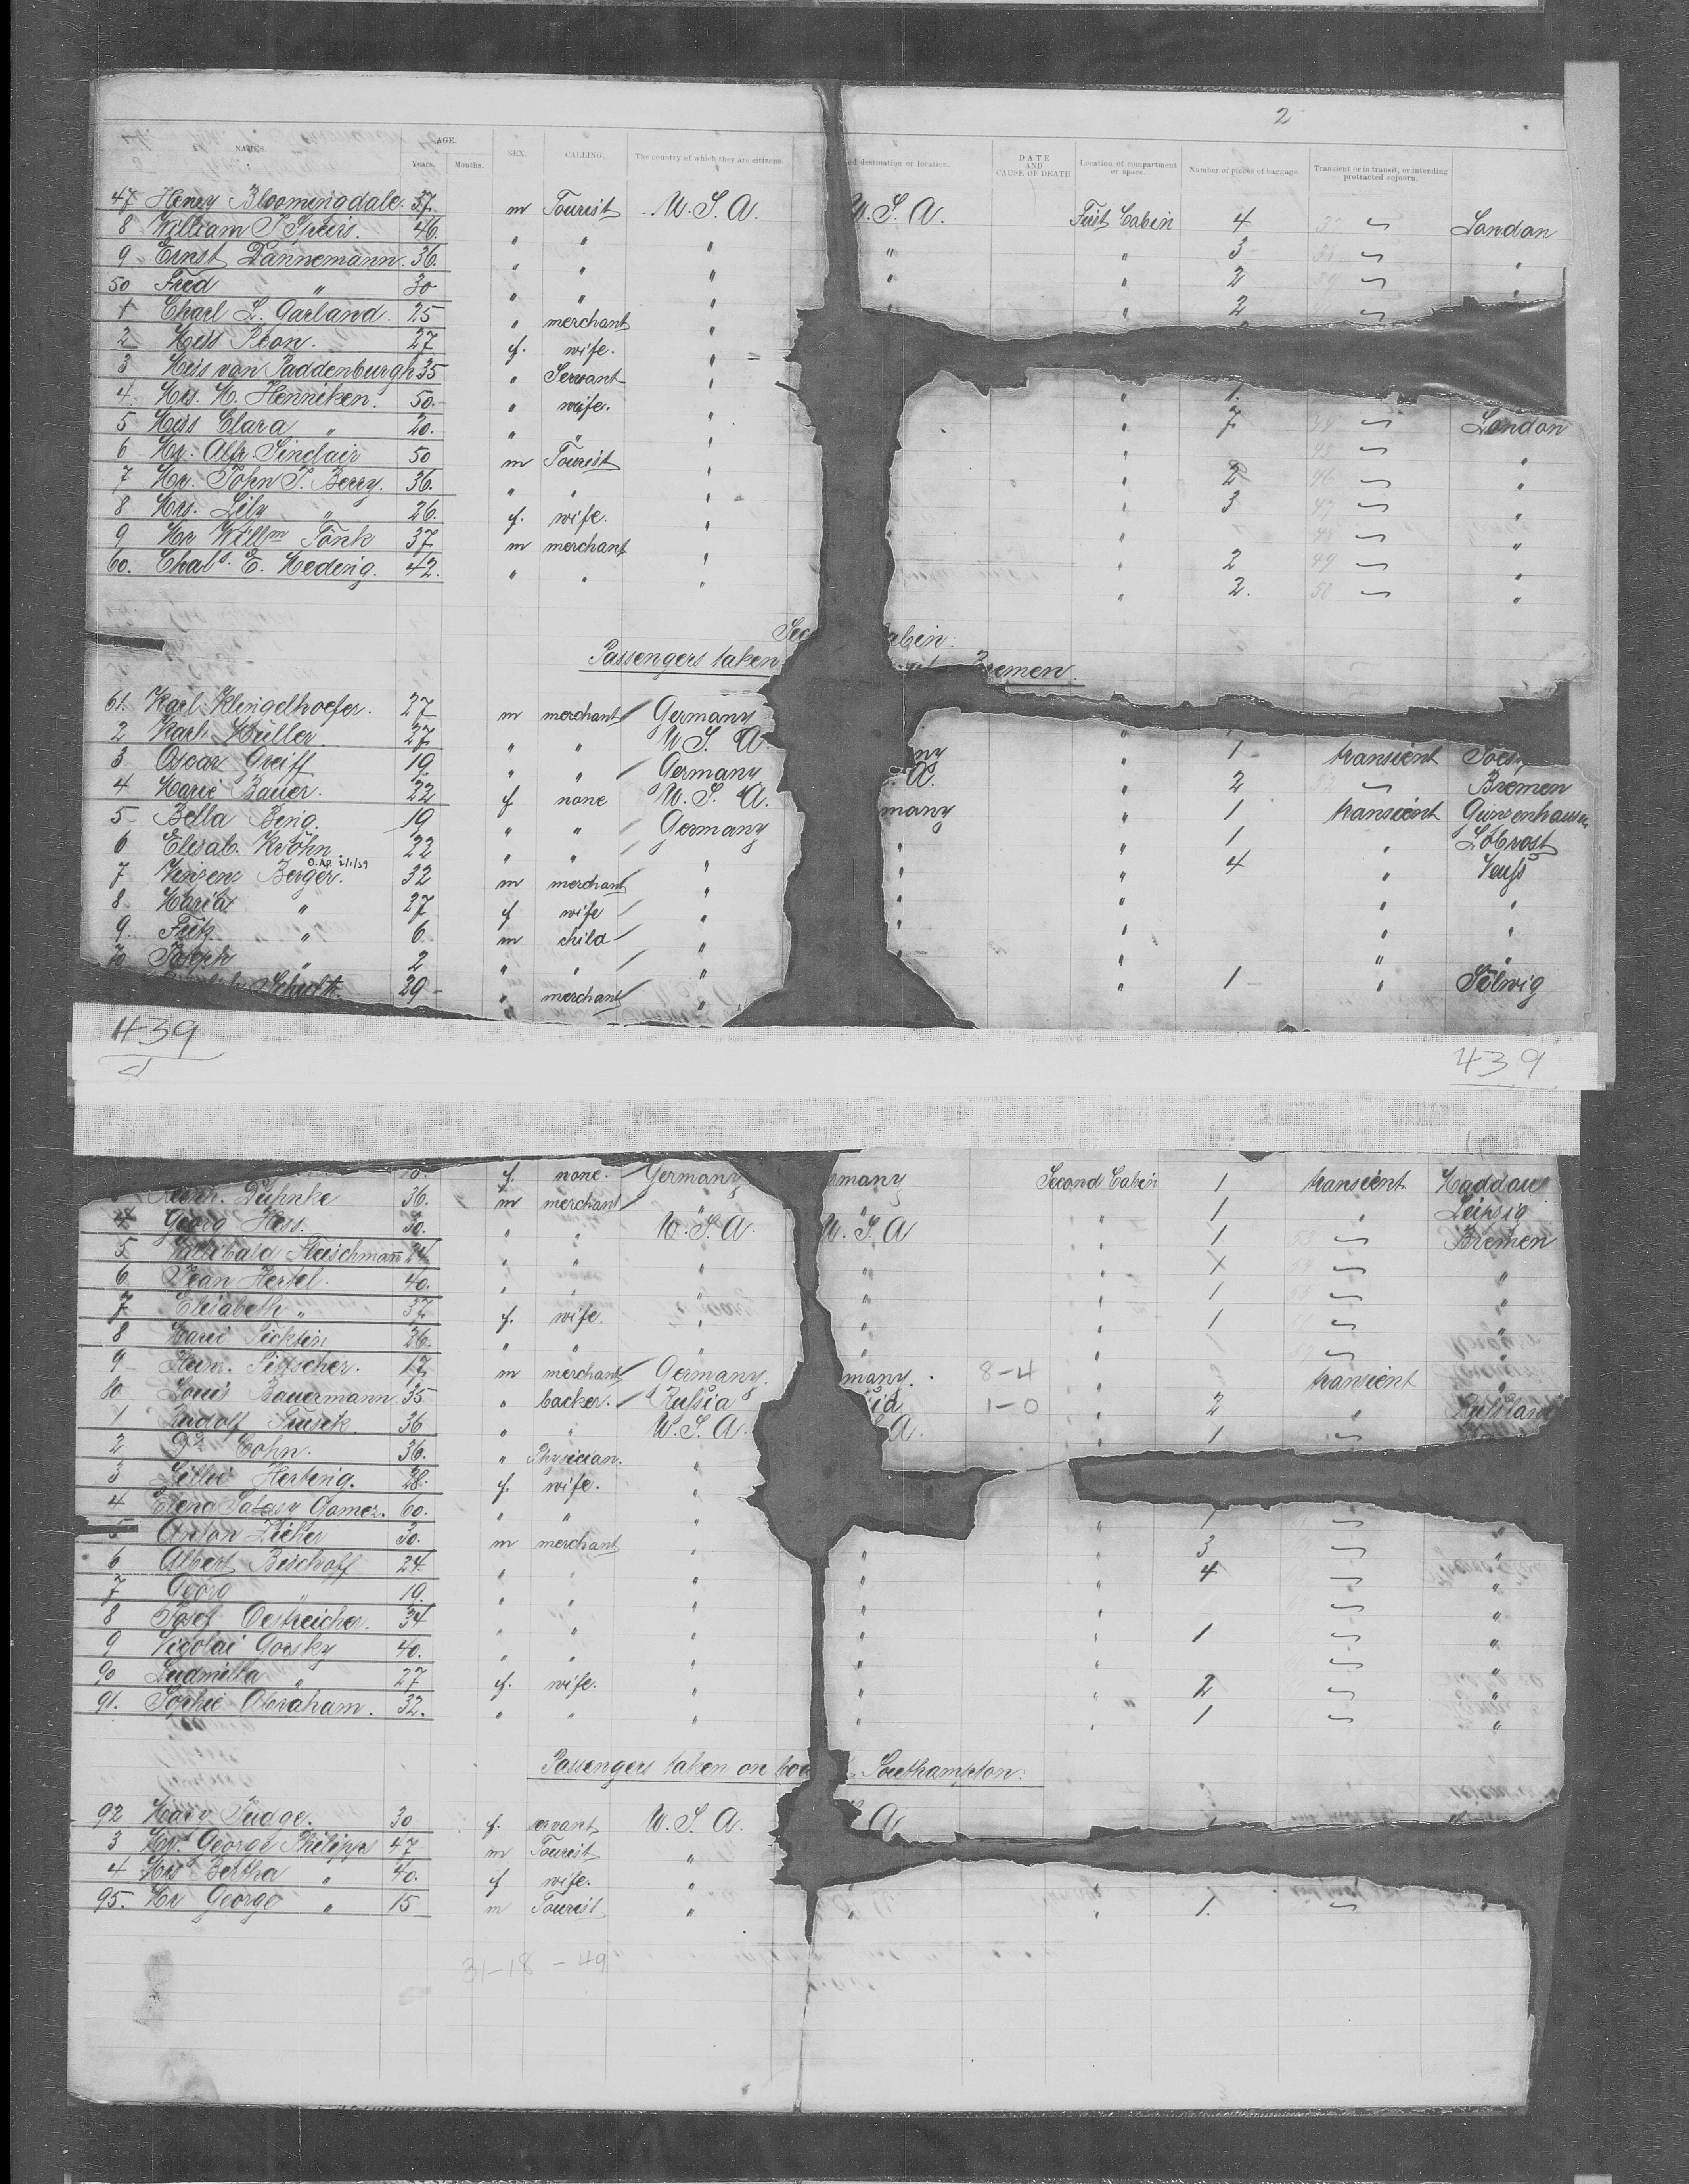 2
NAMES. AGE. Years. Months. SEX. CALLING. The country of which they are citizens. destination or location. DATE AND CAUSE OF DEATH Location of compartment or space. Number of pieces of baggage. Transient or in transit, or intending protracted sojourn.
47 Henry Bloomingdale. 37 m Tourist U. S. A. U. S. A. First Cabin 4 London
8 William J. 46 " " " 3 "
9 Ernst Dannemann. 36. " " " " " 2 "
50 Fred " 30 " " " " " 2
1 Charl L. Garland. 25 " merchant "
2 Miss 27 f. wife. "
3 Miss van Paddenburgh 35 " Servant "
4 Mrs. M. Henniken. 50. " wife. " " 1.
5 Miss Clara " 20. " " " " 7 London
6 Mr. Alfr. Sinclair 50 m Tourist " " "
7 Mr. John J. Berry. 36. " " " " 2 "
8 Mrs. Lily " 26. f. wife. " " 3 "
9 Mr Willm Tonk 37 m merchant " " "
60. Chal E. Heding. 42. " " " " 2 "
" 2. "
Sec abin:
Passengers taken Bremen.
61. Karl Klingelhoefer. 27 m merchant Germany
2 Karl Müller. 27 " " U. S. A. ny " 1 transient
3 Oscar Greiff 19 " " Germany A. " 2 Bremen
4 Marie Bauer. 22 f none U. S. A. many " 1 transient Gunzenhausen
5 Bella Bing. 19 " " Germany " " 1 "
6 Elisab. Kröhn 22 " " " " " 4 "
7 Berger. 32 m merchant " " " "
8 Maria " 27 f wife " " " " "
9. Fritz " 6. m child " " " " "
70 Joseph " 2 " " " " "
Schult. 29 " merchant " " 1 "
439
439
f. none. Germany many Second Cabin 1 transient
36. m merchant " " 1 " Leipzig
4 Georg Hess. 30. " " U. S. A. U. S. A " 1 Bremen
5 Willibald Fleischmann 24 " " " " " X "
6 Jean Hertel. 40. " " " " " 1 "
7 Elisabeth " 37 f. wife. " " " 1 "
8 Marie 26. " " " " "
9 17 m merchant Germany. many. 8-4 " transient "
80 Louis Bauermann 35 " backer. Russia ia 1-0 " 2 " Russland
1 Rudolf 36 " " U. S. A. A. " 1
2 Dr Cohn. 36. " Physician. "
3 Lillie Herting. 28. f. wife. "
4 Elena Gomez. 60. " " " " "
5 Anton 30. m merchant " " " 3 "
6 Albert Bischoff 24 " " " " " 4 "
7 Georg " 19. " " " " " "
8 Josef Oestreicher. 34 " " " " " 1 "
9 Nicolai Gorsky 40. " " " " " "
90 Ludmilla " 27 f. wife. " " " 2 "
91. Sophie Abraham. 32. " " " " " 1 "
Passengers taken on boa Southampton:
92 Mary Judge. 30 f. servant U. S. A. A
3 Mr. George Philipps 47 m Tourist "
4 Mrs Bertha " 40. f wife. "
95. Mr George " 15 m Tourist " " " 1.
31-18-49